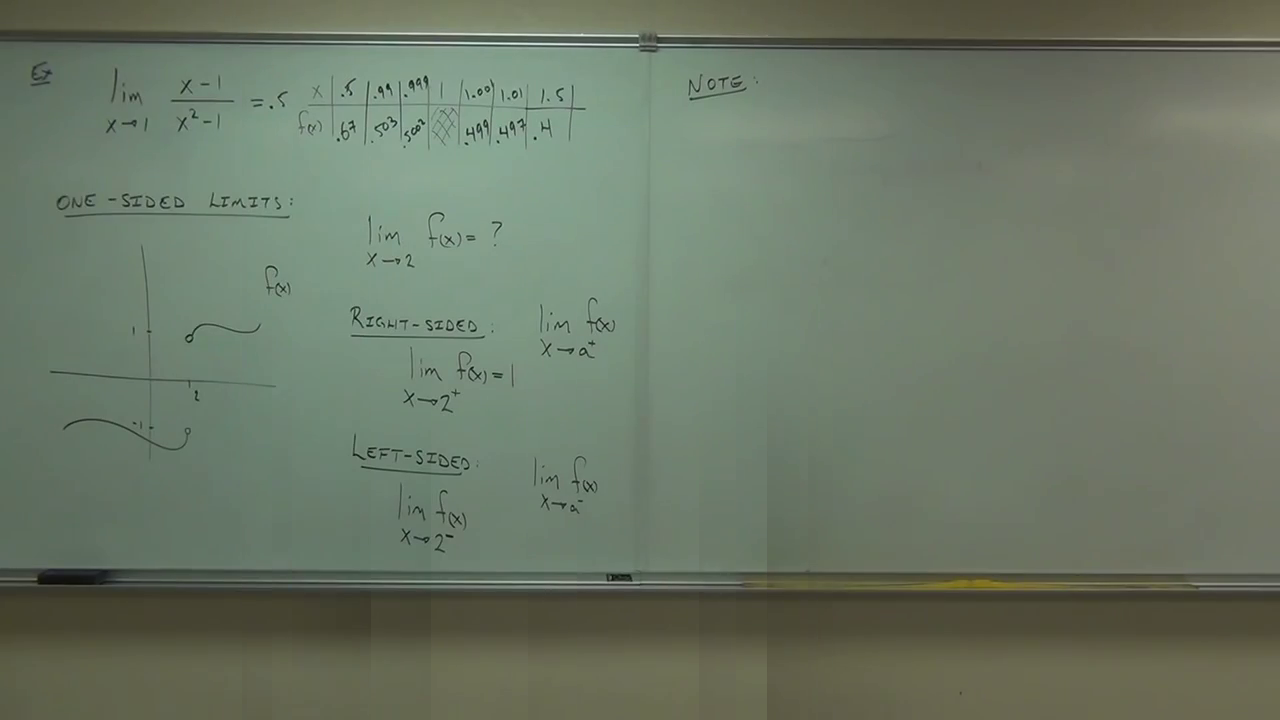 Ex lim x→1 x-1 / x²-1 = .5
x | .5 | .99 | .999 | 1 | 1.001 | 1.01 | 1.5
f(x) | .67 | .503 | .5002 | | .499 | .497 | .4
NOTE:
ONE-SIDED LIMITS:
lim x→2 f(x) = ?
f(x)
1
2
-1
RIGHT-SIDED: lim x→a⁺ f(x)
lim x→2⁺ f(x) = 1
LEFT-SIDED: lim x→a⁻ f(x)
lim x→2⁻ f(x)